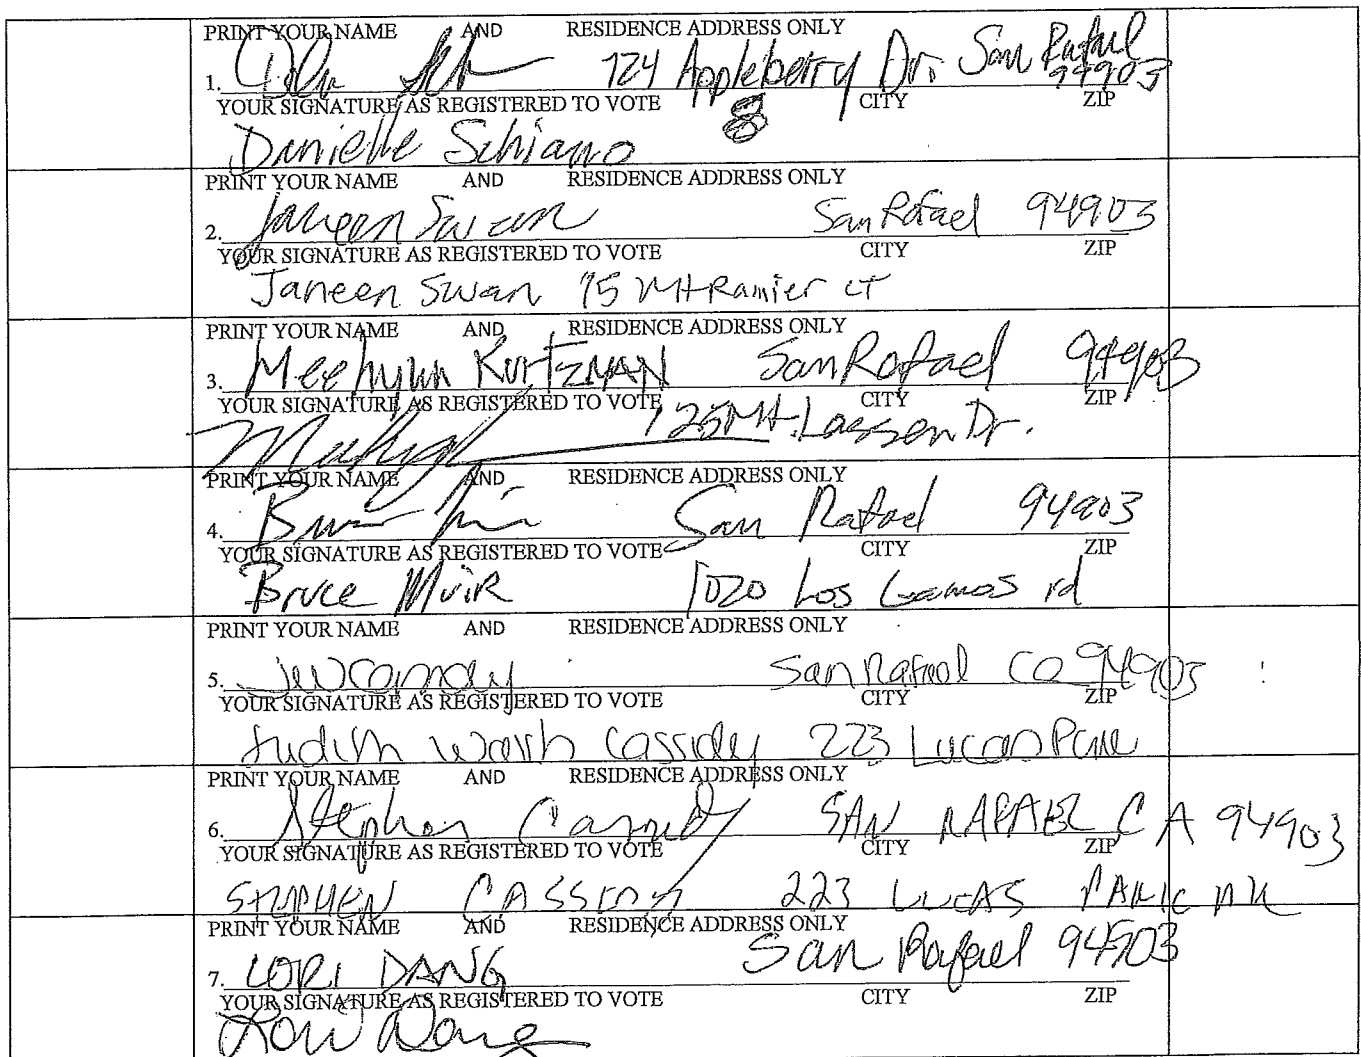 PRINT YOUR NAME AND RESIDENCE ADDRESS ONLY
1. 124 Appleberry Dr. San Rafael 94903
YOUR SIGNATURE AS REGISTERED TO VOTE CITY ZIP
Danielle Schiano
PRINT YOUR NAME AND RESIDENCE ADDRESS ONLY
2. Janeen Swan San Rafael 94903
YOUR SIGNATURE AS REGISTERED TO VOTE CITY ZIP
Janeen Swan 75 Mt Rainier CT
PRINT YOUR NAME AND RESIDENCE ADDRESS ONLY
3. Meehyun KurtzMAN San Rafael 94903
YOUR SIGNATURE AS REGISTERED TO VOTE CITY ZIP
125 Mt. Lassen Dr.
PRINT YOUR NAME AND RESIDENCE ADDRESS ONLY
4. San Rafael 94903
YOUR SIGNATURE AS REGISTERED TO VOTE CITY ZIP
Bruce Muir 1020 Los Gamos rd
PRINT YOUR NAME AND RESIDENCE ADDRESS ONLY
5. San Rafael Ca 94903
YOUR SIGNATURE AS REGISTERED TO VOTE CITY ZIP
Judith Cassidy 223 Lucas
PRINT YOUR NAME AND RESIDENCE ADDRESS ONLY
6. Stephen Cassidy SAN RAFAEL CA 94903
YOUR SIGNATURE AS REGISTERED TO VOTE CITY ZIP
STEPHEN CASSIDY 223 LUCAS PARK DR
PRINT YOUR NAME AND RESIDENCE ADDRESS ONLY
7. LORI DANG San Rafael 94903
YOUR SIGNATURE AS REGISTERED TO VOTE CITY ZIP
Lori Dang